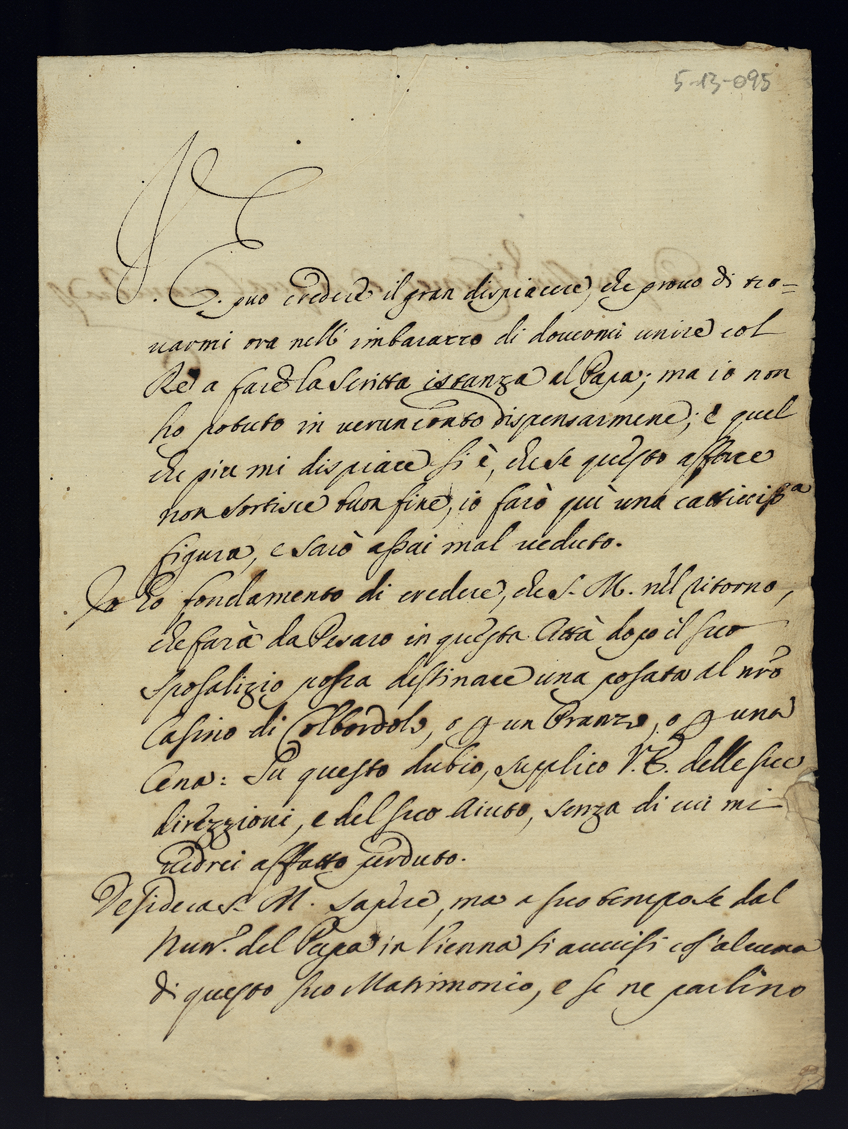 5-13-095
V. E. può credere il gran dispiacere, che provo di tro=
varmi ora nell'imbarazzo di dovermi unire col
Re a fare la scritta istanza al Papa; ma io non
ho potuto in verun conto dispensarmene; e quel
che più mi dispiace si è, che se questo affare
non sortisce buon fine, io farò quì una cattiviss.a
figura, e sarò assai mal veduto.
Io ho fondamento di credere, che S. M. nel ritorno,
che farà da Pesaro in questa Città dopo il suo
sposalizio possa destinare una posata al nrõ
Casino di Colbordolo, o p un Pranzo, o p una
Cena: In questo dubio, supplico V. E. delle sue
direzzioni, e del suo aiuto, senza di cui mi
vedrei affatto perduto.
Desidera S. M. sapere, ma a suo tempo se dal
Nun. del Papa in Vienna si avvisi cos'alcuna
di questo suo Matrimonio, e se ne parlino